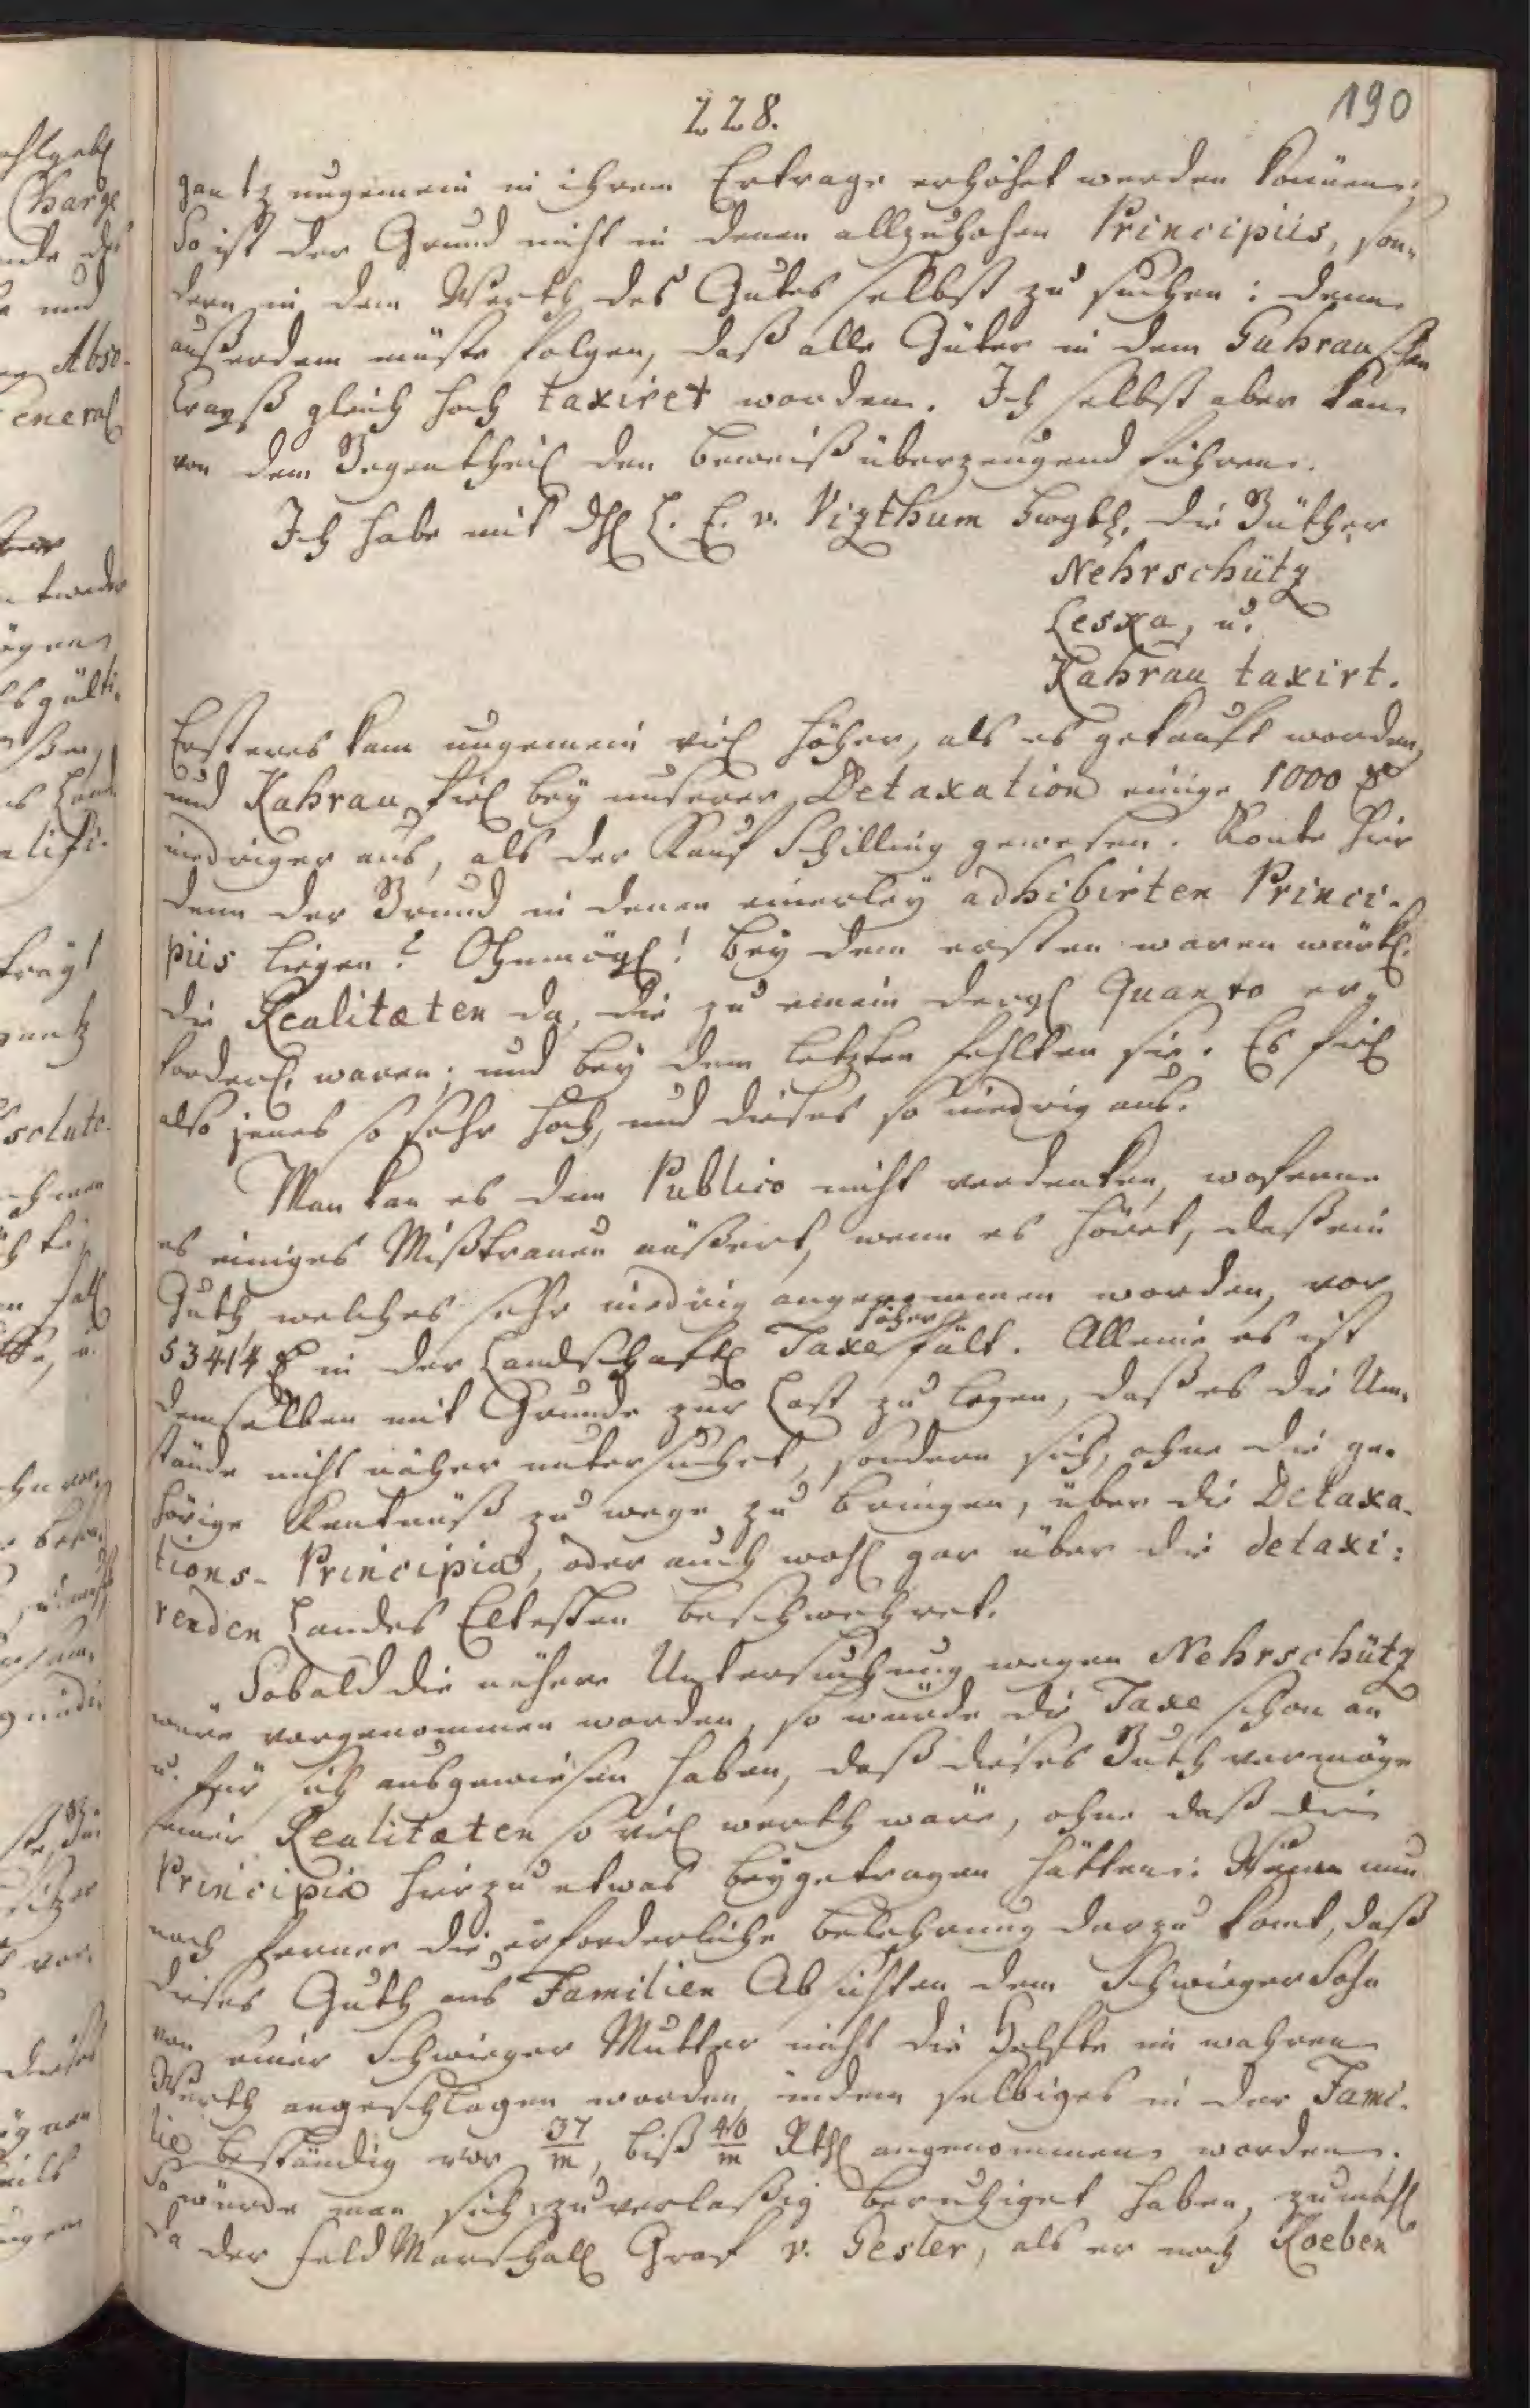 228.
190
gantz ungemein in ihrem Ertrage erhöhet werden können;
So ist der Grund nicht in denen allzuhohen Principiis, son-
dern in dem Werth des Gutes selbst zu suchen: denn
außerdem müste folgen, daß alle Güter in dem Guhrauschen
Crayß gleich hoch taxiret worden. Ich selbst aber kan
von dem Gegentheil den Beweiß überzeugend führen.
Ich habe mit L. E. v. Vizthum die Güther
Nehrschütz
Leska, u.
Kahrau taxirt.
Ersteres kam ungemein viel höher, als es gekauft worden,
und Kahrau fiel bey unserer Detaxation einige 1000
niedriger aus, als der Kauf Schilling gewesen. Konte hier
denn der Grund in denen einerley adhibirten Princi-
piis liegen? Ohnmögl! Bey dem ersten waren würkl.
die Realitæten da, die zu einem dergl Quanto er-
forderl. waren; und bey dem letzten fehlten sie. Es fiel
also jenes so sehr hoch, und dieses so niedrig aus.
Man kan es dem Publico nicht verdenken, woferne
es einiges Mißtrauen äußert, wenn es höret, daß ein
Guth welches sehr niedrig angenommen worden, vor
53414 in der Landschaftl Taxe höher fält. Alleine es ist
demselben mit Grunde zur Last zu legen, daß es die Um-
stände nicht näher untersuchet, sondern sich, ohne die ge-
hörige Kentnüß zu wege zu bringen, über die Detaxa-
tions-Principia, oder auch wohl gar über die detaxi:
renden Landes Eltesten beschwehret.
Sobald die nähere Untersuchung wegen Nehrschütz
wäre vorgenommen worden, so würde die Taxe schon an
u. für sich ausgewiesen haben, daß dieses Guth vermöge
seiner Realitæten so viel werth wäre, ohne daß die
Principia hierzu etwas beygetragen hätten: Wenn nun
noch ferner die erforderliche Belehrung darzu komt, daß
dieses Guth aus Familien Absichten dem Schwieger Sohn
von einer Schwieger Mutter nicht die Helfte im wahren
Werth angeschlagen worden, indem selbiges in der Fami-
lie beständig vor 37/m, biß 40/m Rthl angenommen worden.
So würde man sich zuverlaßig beruhiget haben, zumahl
da der Feld Marschall Graf v. Gesler, als er noch Koeben